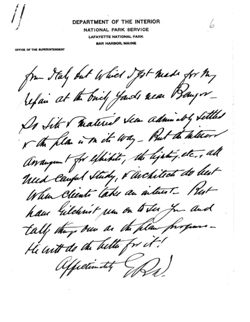 6
DEPARTMENT OF THE INTERIOR
NATIONAL PARK SERVICE
LAFAYETTE NATIONAL PARK
BAR HARBOR, MAINE
OFFICE OF THE SUPERINTENDENT
from Italy but which I got made for my
repair at the brick yards near Bangor.
So site & material seem admirably settled
& the plan is on its way – But the interior
arrangement for exhibits, the lighting, etc., all
need careful study, & architects do best
when clients take an interest – Best
have Gilchrist run on to see you and
talk things over as the plan progresses –
He will do the better for it!
Affectionately